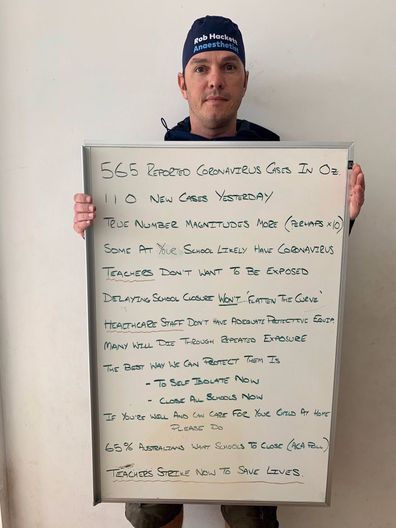 Rob Hackett
Anaesthetist
565 REPORTED CORONAVIRUS CASES IN OZ
110 NEW CASES YESTERDAY
TRUE NUMBER MAGNITUDES MORE (PERHAPS x10)
SOME AT YOUR SCHOOL LIKELY HAVE CORONAVIRUS
TEACHERS DON'T WANT TO BE EXPOSED
DELAYING SCHOOL CLOSURE WON'T 'FLATTEN THE CURVE'
HEALTHCARE STAFF DON'T HAVE ADEQUATE PROTECTIVE EQUIP.
MANY WILL DIE THROUGH REPEATED EXPOSURE
THE BEST WAY WE CAN PROTECT THEM IS
- TO SELF ISOLATE NOW
- CLOSE ALL SCHOOLS NOW
IF YOU'RE WELL AND CAN CARE FOR YOUR CHILD AT HOME
PLEASE DO
65% AUSTRALIANS WANT SCHOOLS TO CLOSE (ACA POLL)
TEACHERS STRIKE NOW TO SAVE LIVES